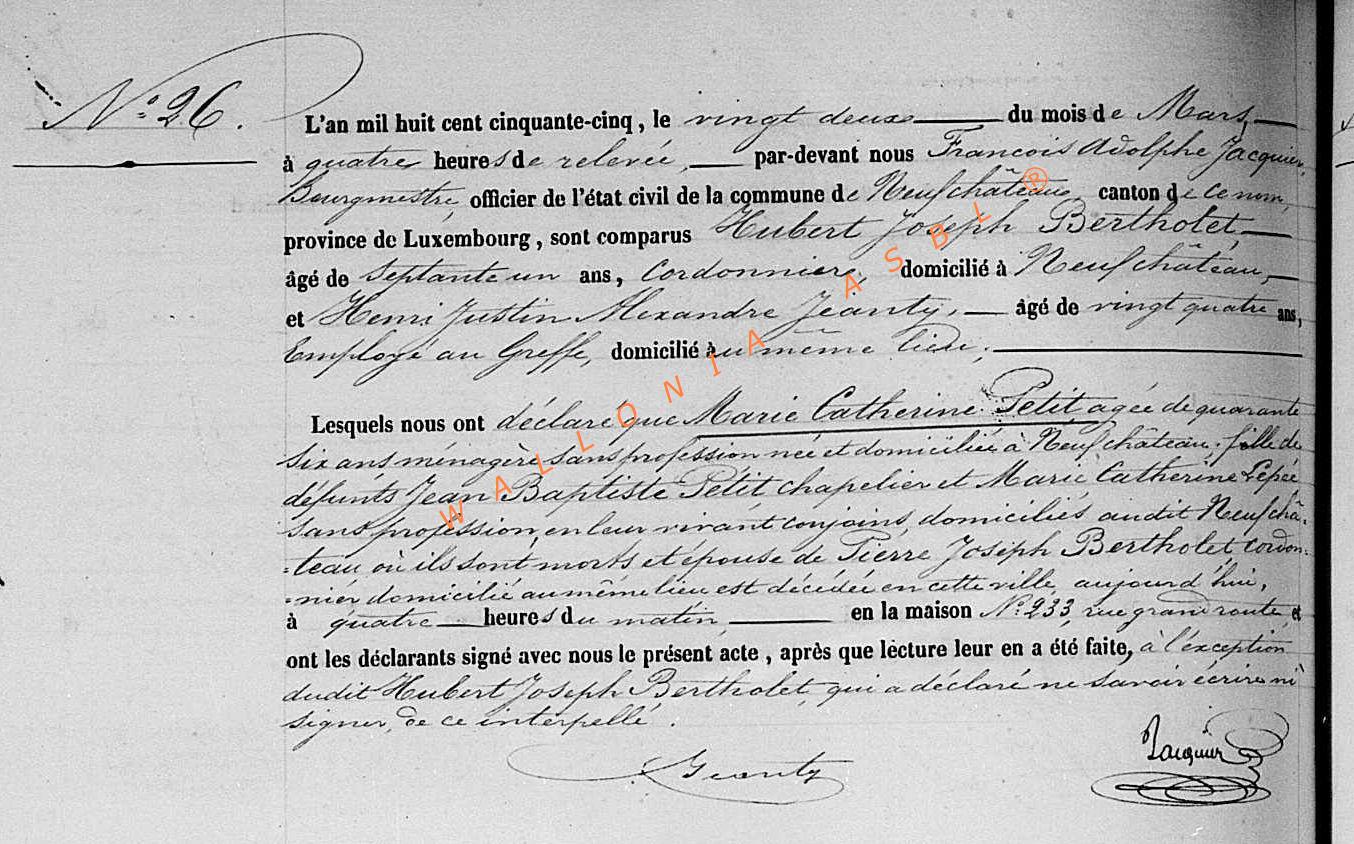 N.° 26.
L'an mil huit cent cinquante-cinq, le vingt deux du mois de Mars
à quatre heures de relevée, par-devant nous Francois Adolphe Jacquier,
Bourgmestre, officier de l'état civil de la commune de Neufchâteau, canton de ce nom,
province de Luxembourg, sont comparus Hubert Joseph Bertholet,
âgé de Septante un ans, Cordonnier, domicilié à Neufchâteau,
et Henri Justin Alexandre Jeanty, âgé de vingt quatre ans,
Employé au Greffe, domicilié au même lieu,
Lesquels nous ont déclaré que Marie Catherine Petit agée de quarante
six ans ménagère sans profession née et domiciliée à Neufchâteau, fille de
défunts Jean Baptiste Petit chapelier et Marie Catherine Lepée
sans profession, en leur vivant conjoins, domiciliés audit Neufchâ-
-teau où ils sont morts et épouse de Pierre Joseph Bertholet cordon-
-nier domicilié au même lieu est décédée en cette ville, aujourd'hui,
à quatre heures du matin, en la maison N.° 233, rue grand route, et
ont les déclarants signé avec nous le présent acte, après que lecture leur en a été faite, à l'éxception
dudit Hubert Joseph Bertholet, qui a déclaré ne savoir écrire ni
signer, de ce interpellé.
Jeanty
Jacquier
WALLONIA ASBL ®